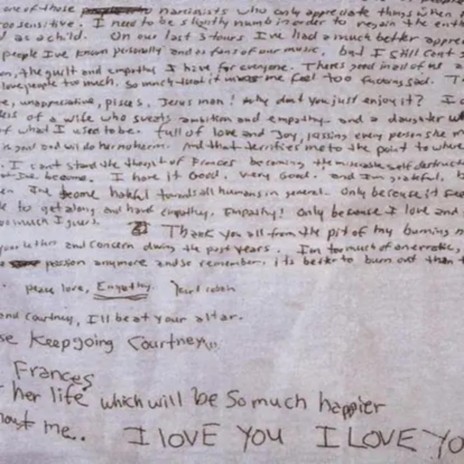 one of those narcissists who only appreciate things when
too sensitive. I need to be slightly numb in order to regain the
as a child. On our last 3 tours I've had a much better
people I've known personally and as fans of our music, but I still can't
the guilt and empathy I have for everyone. There's good in all of us
love people too much. So much that it makes me feel too fucking sad.
unappreciative, pisces, Jesus man! Why don't you just enjoy it? I
of a wife who sweats ambition and empathy and a daughter
of what I used to be. full of love and Joy, kissing every person she
is good and will do her no harm. And that terrifies me to the point to where
I can't stand the thought of Frances becoming the miserable self destructive
I've become. I have it Good, very Good. and I'm grateful,
I've become hateful towards all humans in general. only because it
to get along and have empathy. Empathy! Only because I love and
too much I guess. Thank you all from the pit of my burning
your letters and concern during the past years. I'm too much of an erratic,
person anymore and so remember, its better to burn out than
peace love, Empathy. Kurt Cobain
and Courtney, I'll be at your altar.
Keep going Courtney
Frances
her life which will be so much happier
me.. I LOVE YOU I LOVE